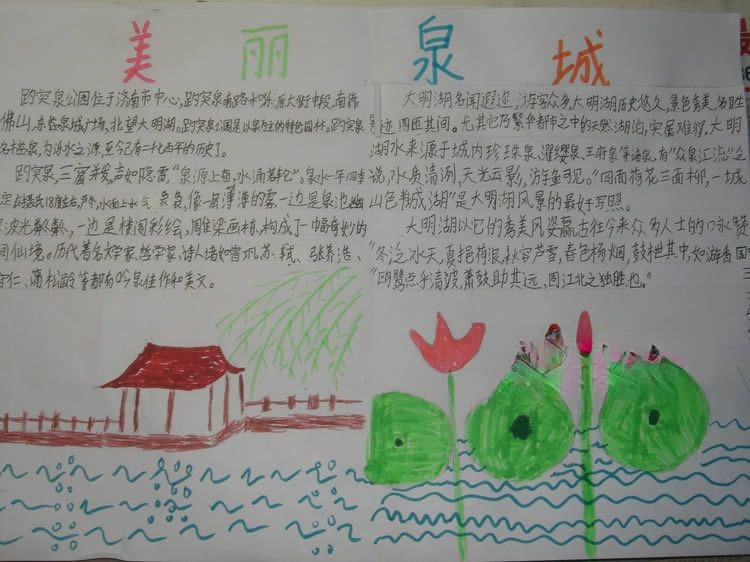 美丽泉城
趵突泉公园位于济南市中心,趵突泉南路和泺源大街中段,南靠
佛山,东临泉城广场,北望大明湖。趵突泉公园是以泉为主的特色园林。趵突泉
名胜泉,为泺水之源,至今已有二七百年的历史了。
趵突泉,三窟并发,声如隐雷,“泉源上奋,水涌若轮”。泉水一年四季
定在摄氏18度左右,严冬,水面上水气袅袅,像一层薄薄的雾,一边是泉池幽
波光粼粼,一边是楼阁彩绘,雕梁画栋,构成了一幅奇妙的
间仙境。历代著名文学家、哲学家、诗人诸如曾巩、苏轼、张养浩、
守仁、蒲松龄等都有吟泉佳作和美文。
大明湖名闻遐迩,游客众多,大明湖历史悠久,景色秀美,名胜
迹周匝其间。尤其它乃繁华都市之中的天然湖泊,实属难得,大明
湖水来源于城内珍珠泉、濯缨泉、王府泉等诸泉,有“众泉汇流”之
说,水质清冽,天光云影,游鱼可见。“四面荷花三面柳,一城
山色半城湖”是大明湖风景的最好写照。
大明湖以它的秀美风姿赢古往今来众多人士的口咏赞
“冬泛冰天,夏挹荷浪,秋容芦雪,春色杨烟,鼓枻其中,如游香国
“鸥鹭点乎清波,萧鼓助其远,固江北之独胜也。”